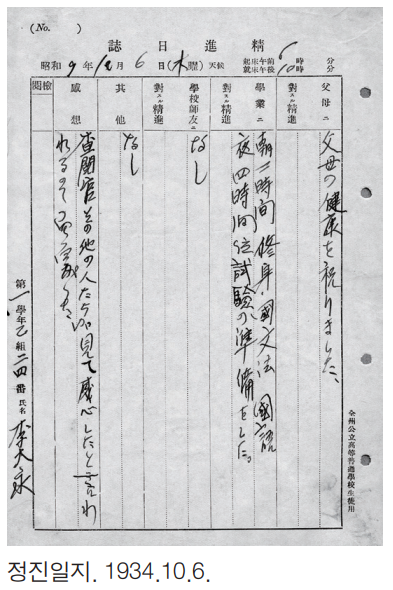 (No. )
精進日誌
昭和 9 年 月 6 日 ( 曜) 天候
起床午前 6 時 分
就床午後 10 時 分
父母ニ對スル精進
父母の健康を祝りました、
學業ニ對スル精進
朝二時間 修身、國文法 國語
夜四時間位試驗の準備をした。
學校師友ニ對スル精進
なし
其他
なし
感想
査閲官その他の人たちが見て感心したと言わ
れる
檢閲
第一學年乙組二四番 氏名 李大永
全州公立高等普通學校生徒用
정진일지. 1934.10.6.